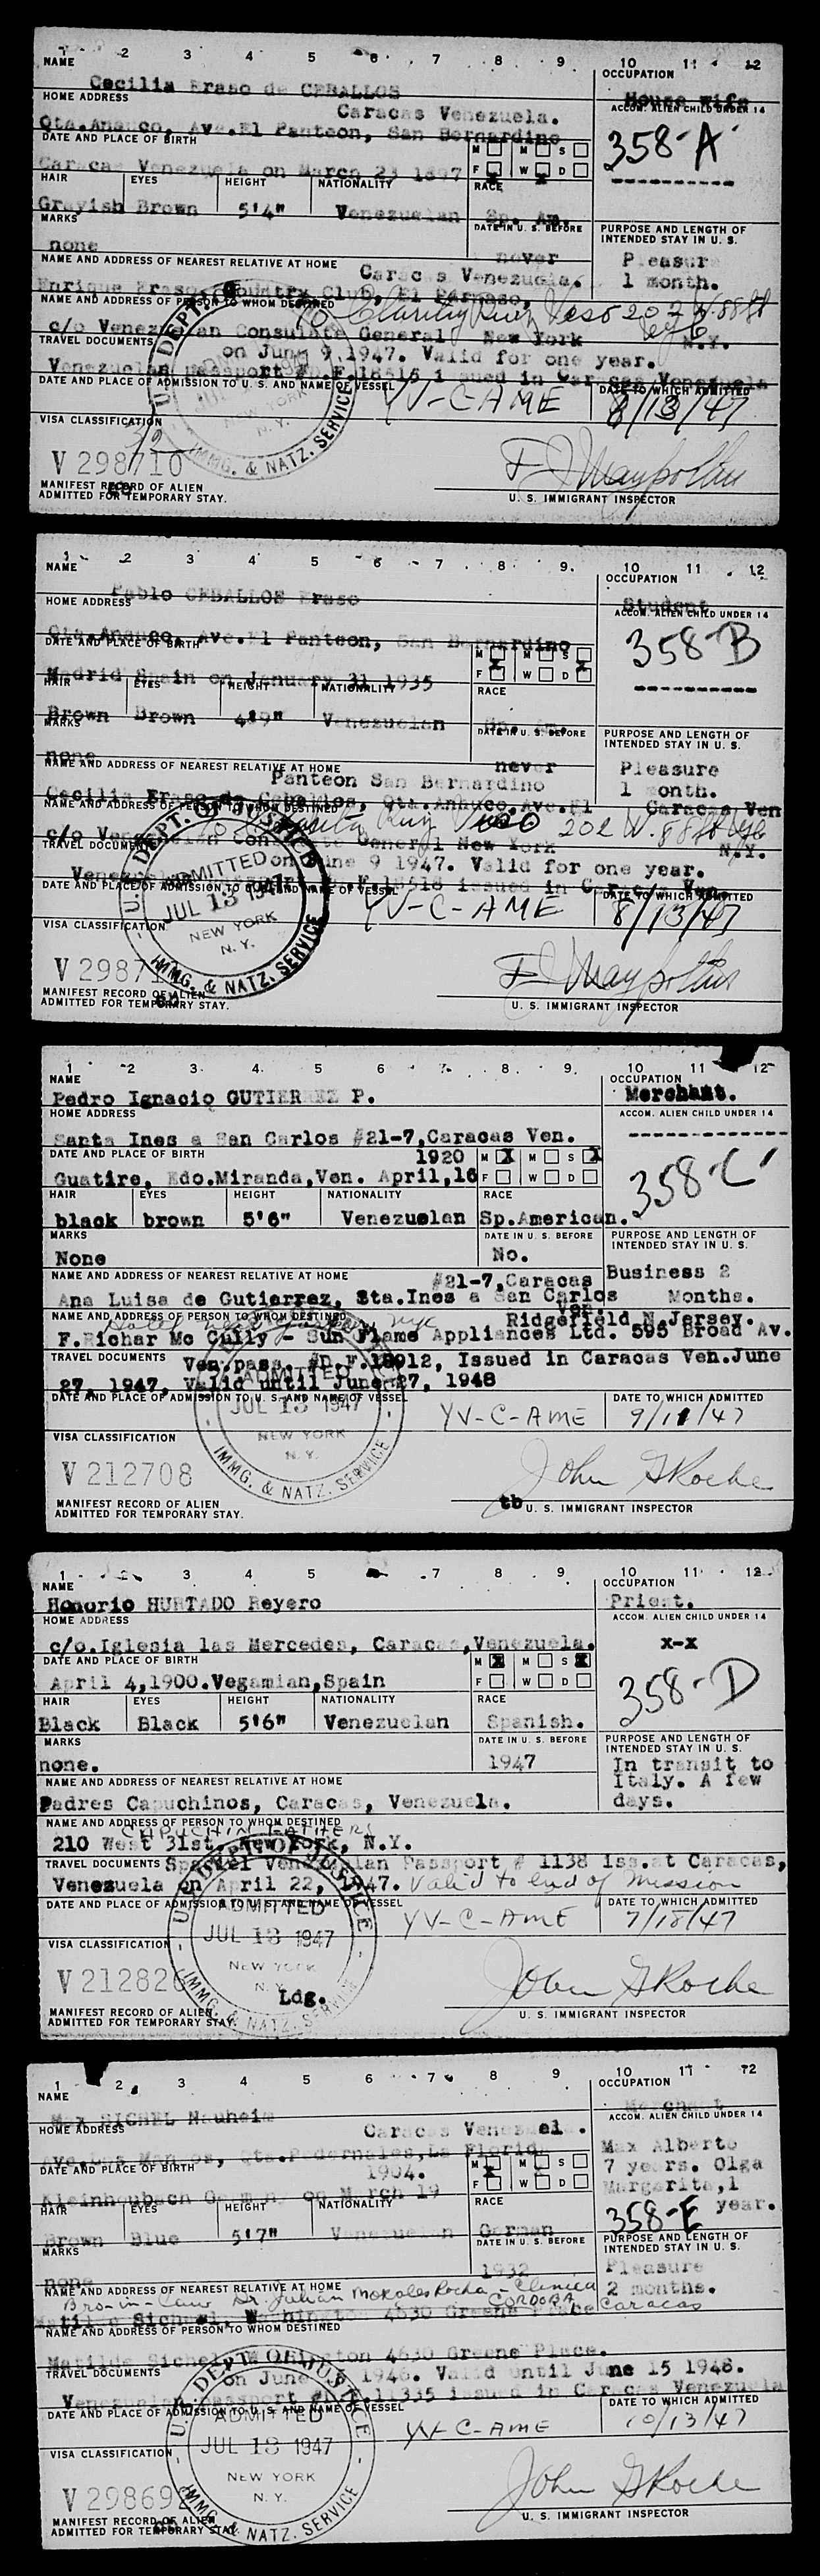 1 2 3 4 5 6 7 8 9 10 11 12
NAME OCCUPATION
Cecilia Eraso de CEBALLOS House wife
HOME ADDRESS ACCOM. ALIEN CHILD UNDER 14
Caracas Venezuela.
Qta.Anauco, Ave.El Panteon, San Bernardino 358-A
DATE AND PLACE OF BIRTH M M S
Caracas Venezuela on March 23 1897 F W D
HAIR EYES HEIGHT NATIONALITY RACE
Grayish Brown 5'4" Venezuelan Sp. Am.
MARKS DATE IN U. S. BEFORE PURPOSE AND LENGTH OF INTENDED STAY IN U. S.
none never Pleasur
NAME AND ADDRESS OF NEAREST RELATIVE AT HOME 1 month.
Carac s Venezuela.
Enrique Eraso, Country Club, El Parnaso,
NAME AND ADDRESS OF PERSON TO WHOM DESTINED
202 W. 88 St
c/o Venezuelan Consulate General New York N.Y.
TRAVEL DOCUMENTS on June 9 1947. Valid for one year.
Venezuelan Passport #D.F.18515 i sued in Caracas Venezuela
DATE AND PLACE OF ADMISSION TO U. S. AND NAME OF VESSEL DATE TO WHICH ADMITTED
YV-C-AME 8/13/47
VISA CLASSIFICATION
V 298710
U. S. DEPT. IMMG. & NATZ. SERVICE NEW YORK N.Y.
MANIFEST RECORD OF ALIEN ADMITTED FOR TEMPORARY STAY.
U. S. IMMIGRANT INSPECTOR
1 2 3 4 5 6 7 8 9 10 11 12
NAME OCCUPATION
Pablo CEBALLOS Eraso Student
HOME ADDRESS ACCOM. ALIEN CHILD UNDER 14
Qta.Anauco, Ave.El Panteon, San Bernardino 358-B
DATE AND PLACE OF BIRTH M M S
Madrid Spain on January 31 1935 F W D
HAIR EYES HEIGHT NATIONALITY RACE
Brown Brown 4'9" Venezuelan Sp. Am.
MARKS DATE IN U. S. BEFORE PURPOSE AND LENGTH OF INTENDED STAY IN U. S.
none never Pleasure
NAME AND ADDRESS OF NEAREST RELATIVE AT HOME 1 onth.
Panteon San Bernardino
Cecilia Eraso de Ceballos, Qta.Anauco,Ave.El Caracas Ven
NAME AND ADDRESS OF PERSON TO WHOM DESTINED
202 W. 88 St
c/o Venezuelan Consulate General New York N.Y.
TRAVEL DOCUMENTS on June 9 1947. Valid for one year.
issued in Caracas Ven.
DATE AND PLACE OF ADMISSION TO U. S. AND NAME OF VESSEL DATE TO WHICH ADMITTED
YV-C-AME 8/13/47
VISA CLASSIFICATION
U. S. DEPT. OF JUSTICE ADMITTED JUL 13 1947 NEW YORK N.Y. IMMG. & NATZ. SERVICE
MANIFEST RECORD OF ALIEN ADMITTED FOR TEMPORARY STAY.
U. S. IMMIGRANT INSPECTOR
1 2 3 4 5 6 7 8 9 10 11 12
NAME OCCUPATION
Pedro Ignacio GUTIERREZ P. Merchant.
HOME ADDRESS ACCOM. ALIEN CHILD UNDER 14
Santa Ines a San Carlos #21-7,Caracas Ven.
DATE AND PLACE OF BIRTH 1920 M X M S X
Guatire, Edo.Miranda,Ven. April,16 F W D 358-C
HAIR EYES HEIGHT NATIONALITY RACE
black brown 5'6" Venezuelan Sp.American.
MARKS DATE IN U. S. BEFORE PURPOSE AND LENGTH OF INTENDED STAY IN U. S.
None No.
NAME AND ADDRESS OF NEAREST RELATIVE AT HOME #21-7,Caracas Business 2
Ana Luisa de Gutierrez, Sta.Ines a San Carlos Ven. Months.
NAME AND ADDRESS OF PERSON TO WHOM DESTINED Ridgefield N.Jersey.
F.Richar Mc Cully - Sun Flame Appliances Ltd. 595 Broad Av.
TRAVEL DOCUMENTS Ven.pass. #D.F.18912, Issued in Caracas Ven.June
27, 1947, Valid until June 27, 1948
DATE AND PLACE OF ADMISSION TO U. S. AND NAME OF VESSEL DATE TO WHICH ADMITTED
ADMITTED JUL 13 1947 NEW YORK N.Y. IMMG. & NATZ. SERVICE
YV-C-AME 9/11/47
VISA CLASSIFICATION
V 212708 John G Roche
MANIFEST RECORD OF ALIEN ADMITTED FOR TEMPORARY STAY.
tb U. S. IMMIGRANT INSPECTOR
1 2 3 4 5 7 8 9 10 11 12
NAME OCCUPATION
Honorio HURTADO Reyero Priest.
HOME ADDRESS ACCOM. ALIEN CHILD UNDER 14
c/o.Iglesia las Mercedes, Caracas,Venezuela. X-X
DATE AND PLACE OF BIRTH M X M S X
April 4,1900.Vegamian,Spain F W D 358-D
HAIR EYES HEIGHT NATIONALITY RACE
Black Black 5'6" Venezuelan Spanish.
MARKS DATE IN U. S. BEFORE PURPOSE AND LENGTH OF INTENDED STAY IN U. S.
none. 1947 In transit to
NAME AND ADDRESS OF NEAREST RELATIVE AT HOME Italy. A few
Padres Capuchinos, Caracas, Venezuela. days.
NAME AND ADDRESS OF PERSON TO WHOM DESTINED
CAPUCHIN FATHERS
210 West 31st. New York, N.Y.
TRAVEL DOCUMENTS Special Venezuelan Passport # 1138 iss.at Caracas,
Venezuela on April 22, 1947. Valid to end of Mission
DATE AND PLACE OF ADMISSION TO U. S. AND NAME OF VESSEL DATE TO WHICH ADMITTED
U. S. DEPT. OF JUSTICE ADMITTED JUL 13 1947 NEW YORK N.Y. IMMG. & NATZ. SERVICE
YV-C-AME 7/18/47
VISA CLASSIFICATION
V 212826 John G Roche
Ldg.
MANIFEST RECORD OF ALIEN ADMITTED FOR TEMPORARY STAY.
U. S. IMMIGRANT INSPECTOR
1 2 3 4 5 6 7 8 9 10 11 12
NAME OCCUPATION
Max SICHEL Nauheim Merchant
HOME ADDRESS ACCOM. ALIEN CHILD UNDER 14
Caracas Venezuel . Max Alberto
Qta.Pedernales,La Florida 7 years. Olga
DATE AND PLACE OF BIRTH 1904. M M S Margarita,1 year.
Kleinheubach German on March 19 F W D 358-E
HAIR EYES HEIGHT NATIONALITY RACE
Brown Blue 5'7" Venezuelan German
MARKS DATE IN U. S. BEFORE PURPOSE AND LENGTH OF INTENDED STAY IN U. S.
none 1932 Pleasure
NAME AND ADDRESS OF NEAREST RELATIVE AT HOME 2 months.
Bro-in-law Dr. Julian Morales Rocha - Clinica CORDOBA Caracas
Matilde Sichel, Washington 4630 Greene Place
NAME AND ADDRESS OF PERSON TO WHOM DESTINED
Matilde Sichel Washington 4630 Greene Place.
TRAVEL DOCUMENTS on June 1946. Valid until June 15 1948.
Venezuelan Passport #D.F.11335 issued in Caracas Venezuela
DATE AND PLACE OF ADMISSION TO U. S. AND NAME OF VESSEL DATE TO WHICH ADMITTED
U. S. DEPT. OF JUSTICE ADMITTED JUL 13 1947 NEW YORK N.Y. IMMG. & NATZ. SERVICE
YV-C-AME 10/13/47
VISA CLASSIFICATION
John G Roche
MANIFEST RECORD OF ALIEN ADMITTED FOR TEMPORARY STAY.
U. S. IMMIGRANT INSPECTOR